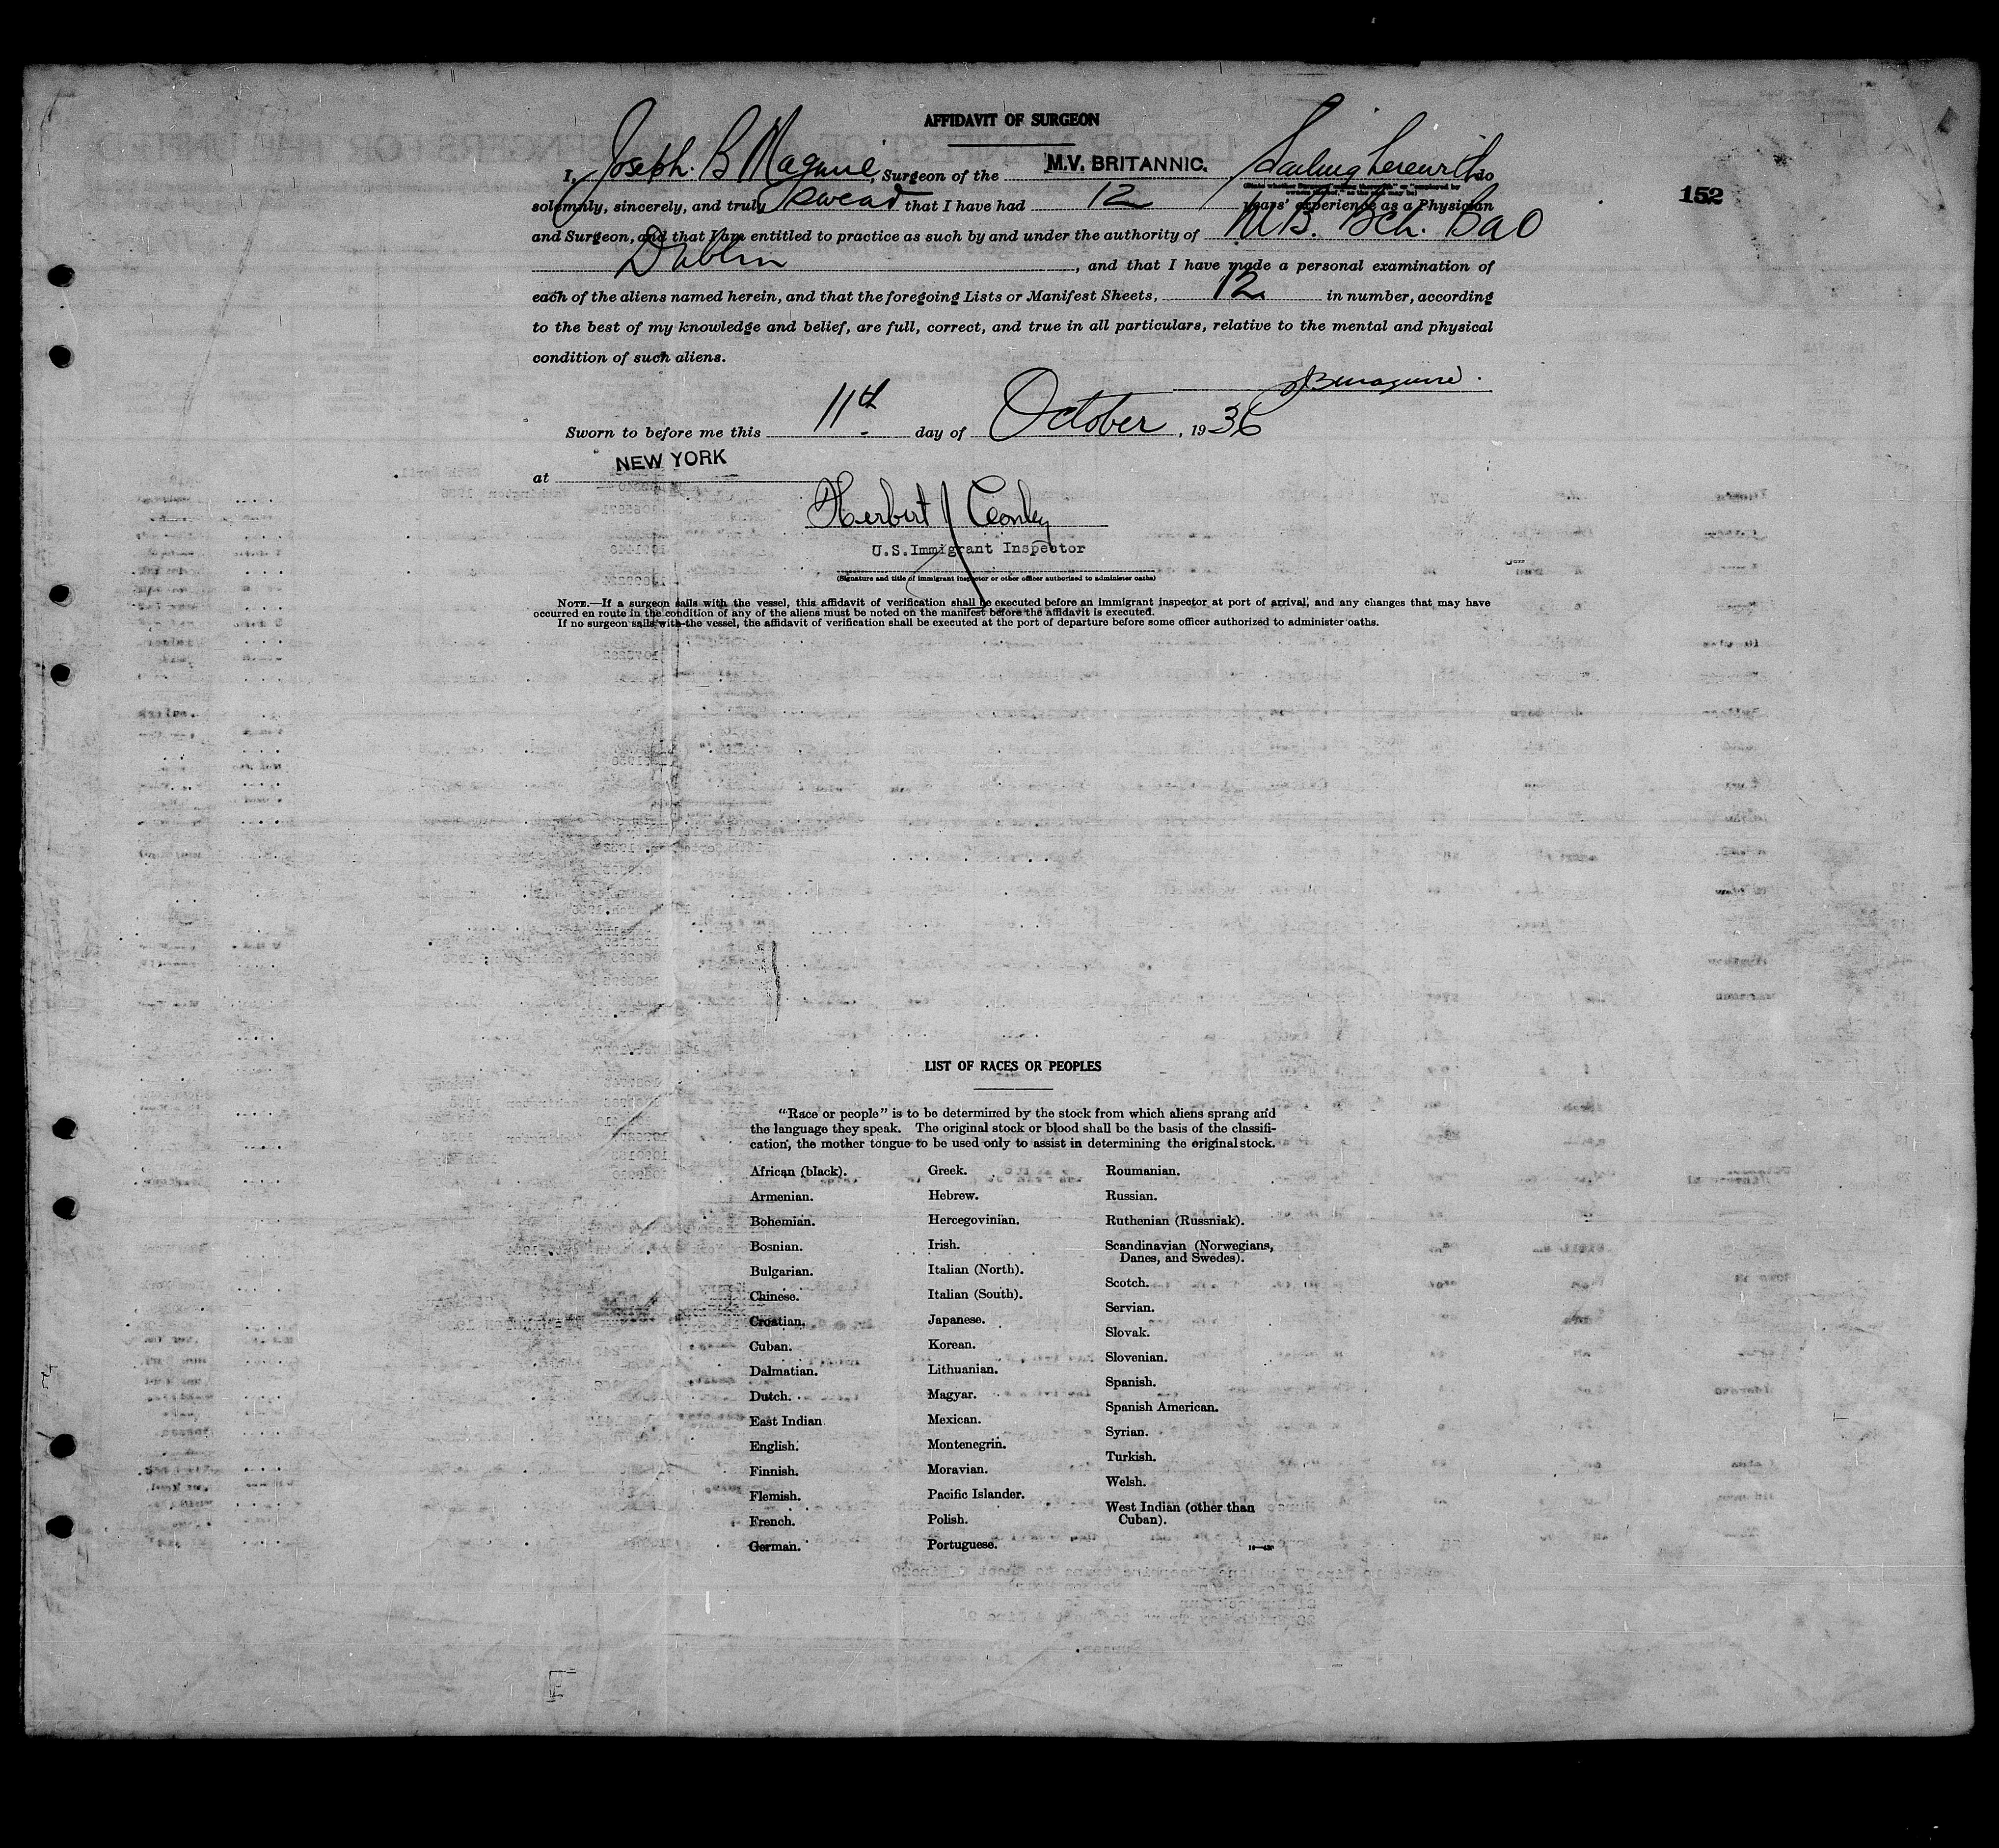 AFFIDAVIT OF SURGEON
I, Joseph. B Maguire, Surgeon of the M.V. BRITANNIC. Sailing therewith do
(State whether Surgeon "sailing therewith" or "employed by owners thereof," as the case may be)
152
solemnly, sincerely, and truly swear that I have had 12 years' experience as a Physician
and Surgeon, and that I am entitled to practice as such by and under the authority of M.B. Bch. BaO
Dublin, and that I have made a personal examination of
each of the aliens named herein, and that the foregoing Lists or Manifest Sheets, 12 in number, according
to the best of my knowledge and belief, are full, correct, and true in all particulars, relative to the mental and physical
condition of such aliens.
JBMaguire.
Sworn to before me this 11th day of October, 1936
at NEW YORK
Herbert J Conley
U.S.Immigrant Inspector
(Signature and title of immigrant inspector or other officer authorized to administer oaths)
NOTE.—If a surgeon sails with the vessel, this affidavit of verification shall be executed before an immigrant inspector at port of arrival, and any changes that may have
occurred en route in the condition of any of the aliens must be noted on the manifest before the affidavit is executed.
If no surgeon sails with the vessel, the affidavit of verification shall be executed at the port of departure before some officer authorized to administer oaths.
LIST OF RACES OR PEOPLES
"Race or people" is to be determined by the stock from which aliens sprang and
the language they speak. The original stock or blood shall be the basis of the classifi-
cation, the mother tongue to be used only to assist in determining the original stock.
African (black).
Armenian.
Bohemian.
Bosnian.
Bulgarian.
Chinese.
Croatian.
Cuban.
Dalmatian.
Dutch.
East Indian
English.
Finnish.
Flemish.
French.
German.
Greek.
Hebrew.
Hercegovinian.
Irish.
Italian (North).
Italian (South).
Japanese.
Korean.
Lithuanian.
Magyar.
Mexican.
Montenegrin.
Moravian.
Pacific Islander.
Polish.
Portuguese.
Roumanian.
Russian.
Ruthenian (Russniak).
Scandinavian (Norwegians,
Danes, and Swedes).
Scotch.
Servian.
Slovak.
Slovenian.
Spanish.
Spanish American.
Syrian.
Turkish.
Welsh.
West Indian (other than
Cuban).